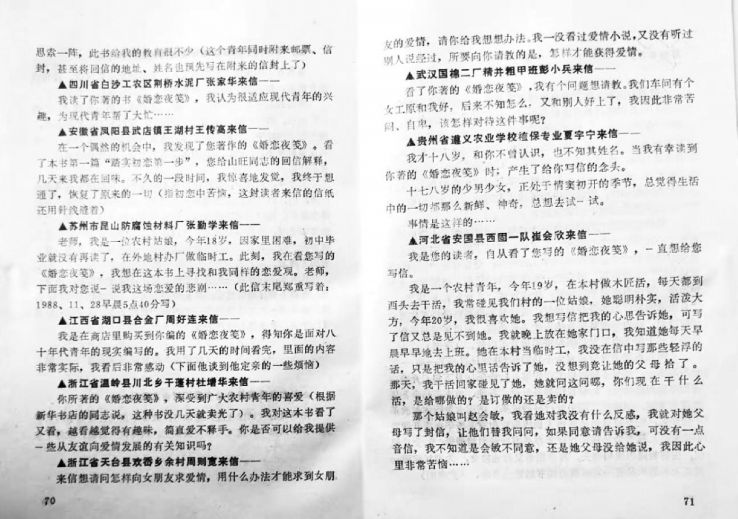 思索一阵，此书给我的教育很不少（这个青年同时附来邮票、信
封，甚至将回信的地址、姓名也预先写在附来的信封上了）
▲四川省白沙工农区荆桥水泥厂张家华来信——
我读了你著的书《婚恋夜笺》，我认为很适应现代青年的兴
趣，为现代青年帮了大忙……
▲安徽省凤阳县武店镇王湖村王传高来信——
在一个偶然的机会中，我发现了您著作的《婚恋夜笺》。看
了本书第一篇“踏实初恋第一步”，您给山旺同志的回信解释，
几天来我都在回味。不久的一段时间，我惊喜地发觉，我终于想
通了，恢复了原来的一切（指初恋中苦恼，这封读者来信的信纸
还用针线缝着）
▲苏州市昆山防腐蚀材料厂张勤学来信——
老师，我是一位农村姑娘，今年18岁，因家里困难，初中毕
业就没有再读了，在外地村办厂做临时工。此刻，我在看您写的
《婚恋夜笺》，我想在这本书上寻找和我同样的恋爱观。老师，
下面我对您说一说我这场恋爱的悲剧……（此信末尾郑重写着：
1988、11、28早晨5点40分写）
▲江西省湖口县合金厂周好连来信——
我是在商店里购买到你编的《婚恋夜笺》，得知你是面对八
十年代青年的现实编写的。我用了几天的时间看完，里面的内容
非常实际，我看后非常感动（下面他谈到他定亲的一些烦恼）
▲浙江省温岭县川北乡干蓬村杜增华来信——
你所著的《婚恋夜笺》，深受到广大农村青年的喜爱（根据
新华书店的同志说，这种书没几天就卖光了）。我对这本书看了
又看，越看越觉得有趣味，简直爱不释手。你是否可以给我提供
一些从友谊向爱情发展的有关知识吗？
▲浙江省天台县欢岙乡余村周则宽来信——
来信想请问怎样向女朋友求爱情，用什么办法才能求到女朋
70
友的爱情，请你给我想想办法。我一没看过爱情小说，又没有听过
别人说经过，所要向你请教的是，怎样才能获得爱情。
▲武汉国棉二厂精并粗甲班彭小兵来信——
看了你著的《婚恋夜笺》，我有个问题想请教。我们车间有个
女工原和我好，后来不知怎么，又和别人好上了，我因此非常苦
闷、自卑，该怎样对待这件事呢？
▲贵州省遵义农业学校植保专业夏宇宁来信——
我才十八岁，和你不曾认识，也不知其姓名。当我有幸读到
你著的《婚恋夜笺》时，产生了给你写信的念头。
十七八岁的少男少女，正处于情窦初开的季节，总觉得生活
中的一切都那么新鲜、神奇，总想去试一试。
事情是这样的……
▲河北省安国县西图一队崔会欣来信——
我是您的读者，自从看了您写的《婚恋夜笺》，一直想给您
写信。
我是一个农村青年，今年19岁，在本村做木匠活，每天都到
西头去干活，我常碰见我们村的一位姑娘，她聪明朴实，活泼大
方，今年20岁，我很喜欢她。我想写信把我的心思告诉她，可写
了信又总是见不到她。我就晚上放在她家门口，我知道她每天早
晨早早地去上班。她在本村当临时工，我没在信中写那些轻浮的
话，只是把我的心里话告诉了她，没想到竟让她的父母拾了。
那天，我干活回家碰见了她，她就问这问哪，你们现在干什么
活，是给哪做的？是订做的还是卖的？
那个姑娘叫赵会敏，我看她对我没有什么反感，我就对她父
母写了封信，让他们替我问问，如果同意请告诉我，可没有一点
音信，我不知道是会敏不同意，还是她父母没给她说，我因此心
里非常苦恼……
71